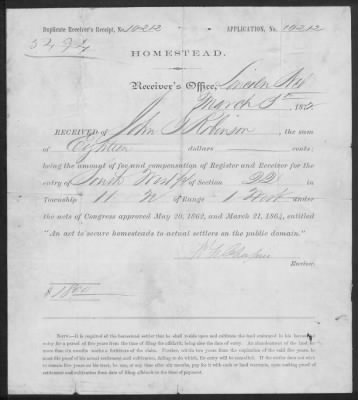 Duplicate Receiver's Receipt, No. 10212 APPLICATION, No. 10212
HOMESTEAD.
Receiver's Office, Lincoln Neb
March 5th 187
RECEIVED OF John Robinson, the sum
of Eighteen dollars cents;
being the amount of fee and compensation of Register and Receiver for the
entry of South West ¼ of Section 22 in
Township 11 N of Range 1 West under
the acts of Congress approved May 20, 1862, and March 21, 1864, entitled
"An act to secure homesteads to actual settlers on the public domain."
Receiver.
$ 1800
NOTE.—It is required of the homestead settler that he shall reside upon and cultivate the land embraced in his homestead
entry for a period of five years from the time of filing the affidavit, being also the date of entry. An abandonment of the land for
more than six months works a forfeiture of the claim. Further, within two years from the expiration of the said five years, he
must file proof of his actual settlement and cultivation, failing to do which, his entry will be cancelled. If the settler does not wish
to remain five years on his tract, he can, at any time after six months, pay for it with cash or land warrants, upon making proof of
settlement and cultivation from date of filing affidavit to the time of payment.